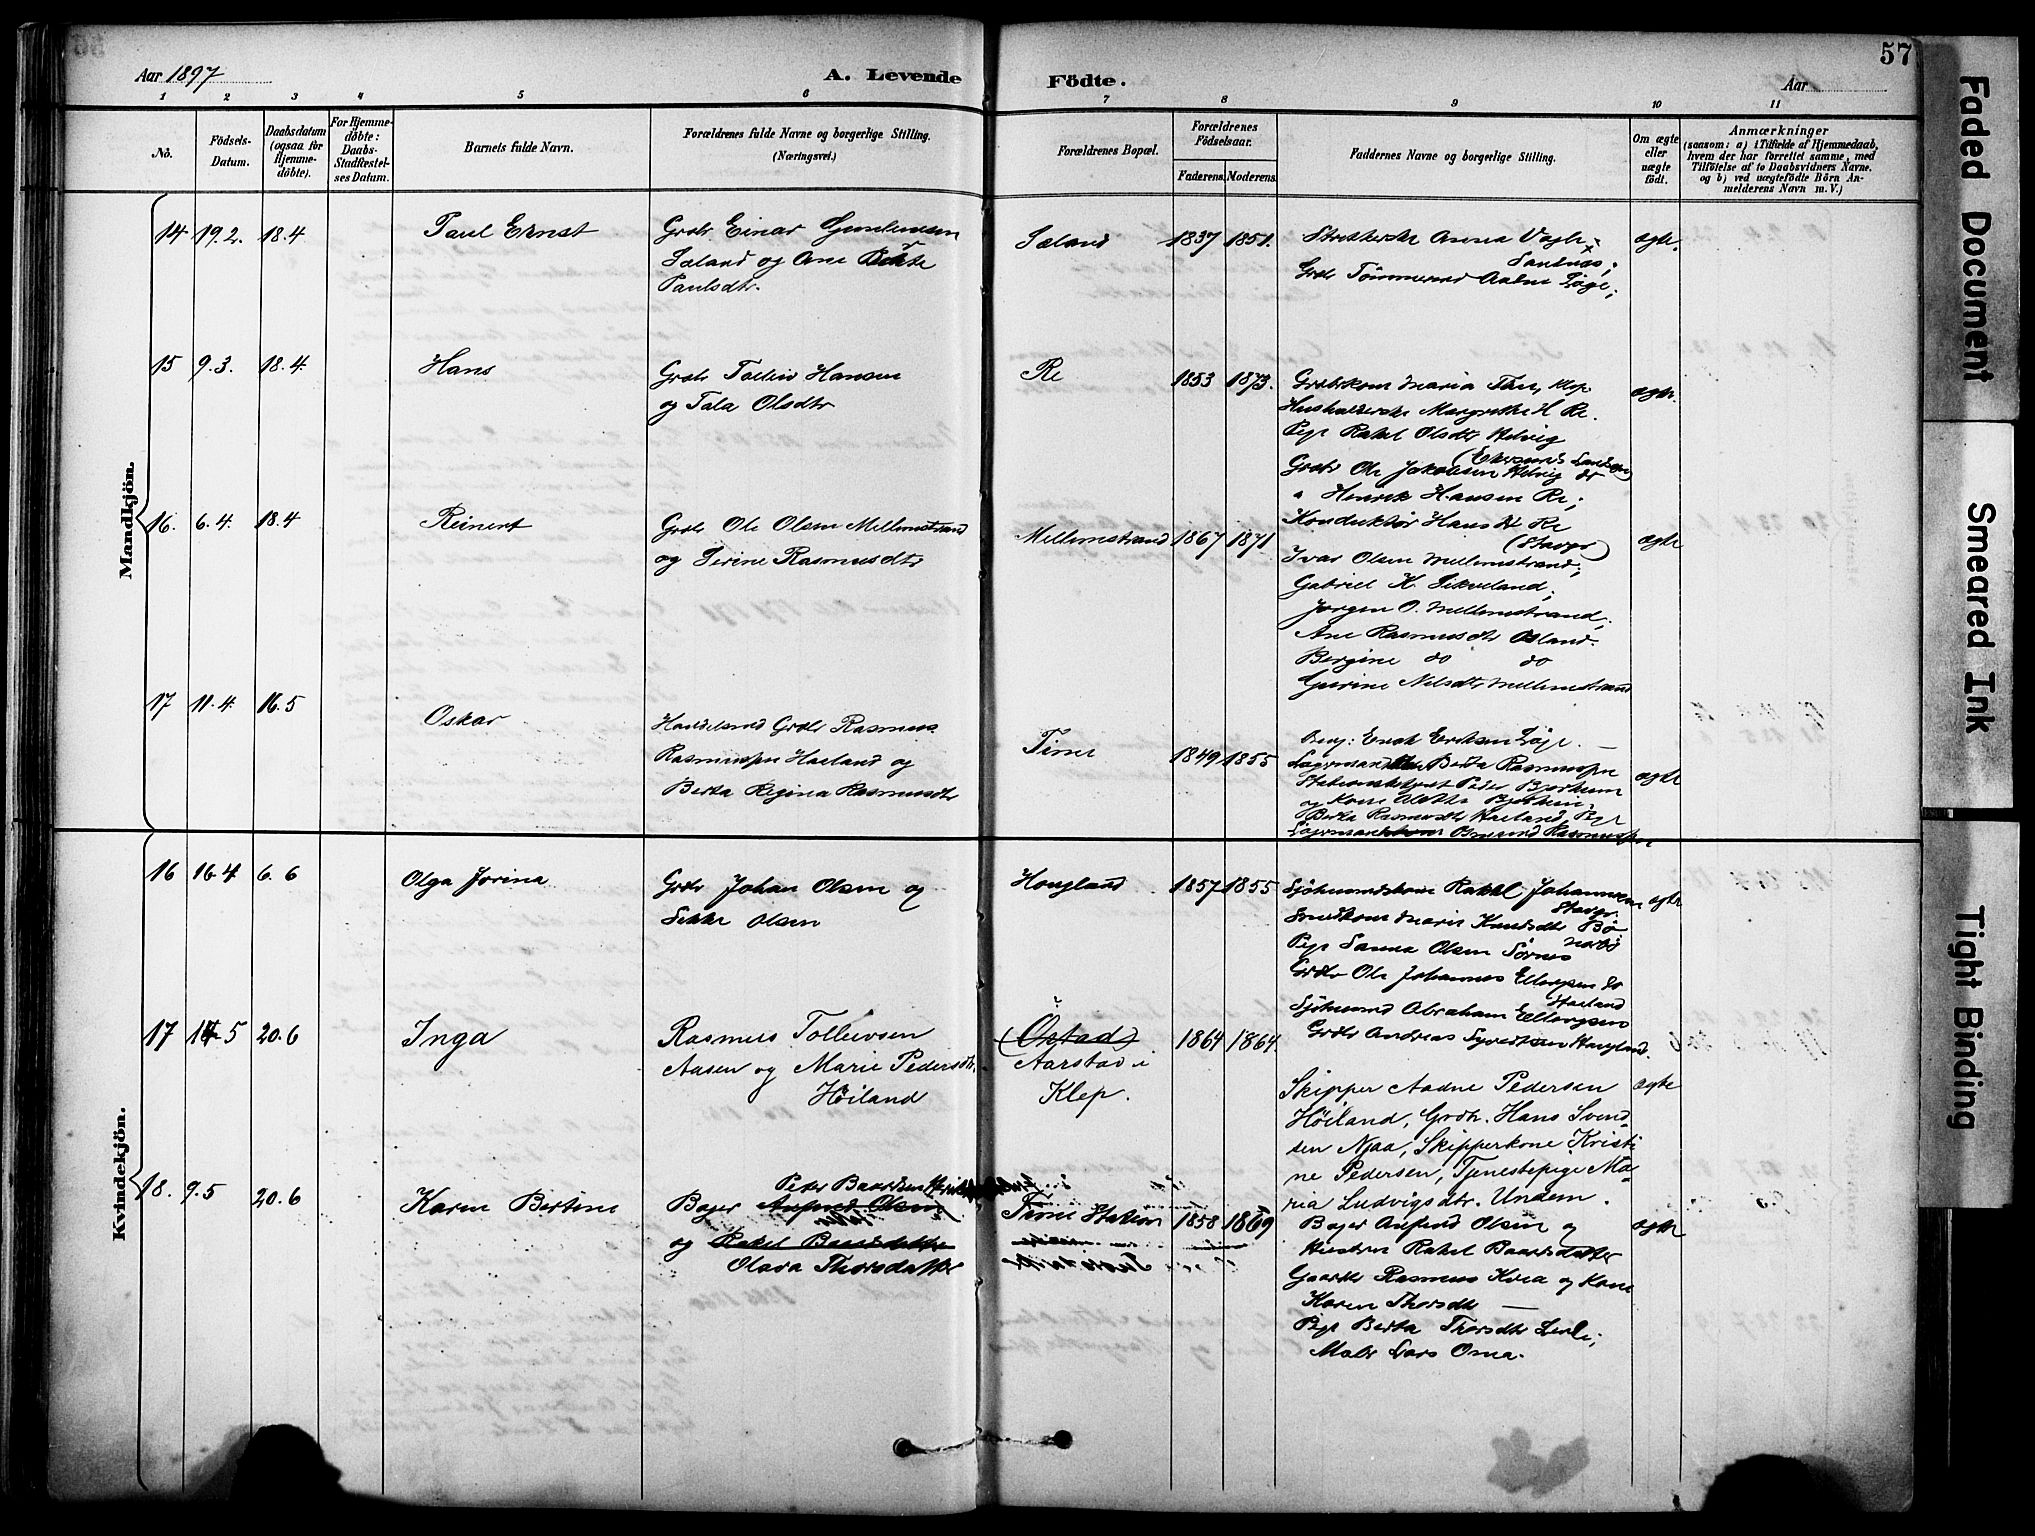 57
Aar 1897
A. Levende
Födte.
Aar
1 2 3 4 5 6 7 8 9 10 11
No.
Födsels-
Datum.
Daabsdatum
(ogsaa for
Hjemme-
döbte).
For Hjemme-
döbte:
Daabs-
Stadfæstel-
ses Datum.
Barnets fulde Navn.
Forældrenes fulde Navne og borgerlige Stilling.
(Næringsvei.)
Forældrenes Bopæl.
Forældrenes
Födselsaar.
Faderens. Moderens.
Faddernes Navne og borgerlige Stilling.
Om ægte
eller
uægte
födt.
Anmærkninger
(saasom: a) i Tilfælde af Hjemmedaab,
hvem der har forrettet samme, med
Tilföielse af to Daabsvidners Navne.
og b) ved uægtefödte Börn An-
melderens Navn m. V.)
Mandkjön.
14 19.2. 18.4
Paul Ernst
Grdr Einar Gunlursen
Sæland og Ane Berte
Paulsdtr.
Sæland
1837 1851.
Anna Vagle
Sandnæs;
Grdr Tönnesand Aadne Löge;
ægte.
15 9.3. 18.4.
Hans
Grdr Tollev Hansen
og Tala Olsdtr
Re
1853 1873.
Grdrkone Maria Thu, Klep
Husholderske Margrethe H Re.
Pige Rakel Olsdtr Helvig
(Ekersunds Landsogn)
Grdr Ole Jakobsen Helvig do
" Henrik Hansen Re;
Konduktør Hans H Re
(Stavgr)
ægte.
16. 6.4. 18.4
Reinert
Grdr Ole Olsen Mellemstrand
og Serine Rasmusdtr
Mellemstrand
1867 1871.
Ivar Olsen Mellemstrand;
Gabriel H. Sikveland;
Jørgen O. Mellemstrand;
Ane Rasmusdtr Osland.
Bergine do do
Gurine Nilsdtr Mellemstrand
ægte
17 11.4. 16.5
Oskar
Handelsmd Grdr Rasmus
Rasmussen Haaland og
Berta Regina Rasmusdtr
Time
1849 1855
Bag: Enok Eriksen Löge. —
Berta Rasmussen
Peder Bjerheim
og Kone Bjerheim.
Berta Rasmusdtr Haaland, Pige
Osmund Rasmussen
ægte
Kvindekjön.
16 16.4 6.6
Olga Jorina
Grdr Johan Olsen og
Sikke Olsen
Haugland
1857 1855
Sjömandskone Rakel Johannesen
Stavgr.
Smedkone Marie Knudsdtr Bö
Nærbö
Pige Sanna Olsen Sørnes
Grdr Ole Johannes Ellingsen do
Haaland
Sjömand Abraham Ellingsen
Grdr Andreas Syvertsen Haugland.
ægte
17 14.5 20.6
Inga
Rasmus Tollevsen
Aasen og Marie Pedersdtr.
Höiland
(Östad)
Aarstad i
Klep.
1864 1864.
Skipper Aadne Pedersen
Höiland, Grdbr. Hans Svend-
sen Njaa, Skipperkone Kristi
ne Pedersen, Tjenestepige Ma-
ria Ludvigsdtr. Undem.
ægte
18. 9.5 20.6
Karen Bertine
Peder Baardsen
Bager Anfind Olsen
og Rakel Baardsdatter
Olava Thorsdatter
Time Station
1858 1869
Bager Anfind Olsen og
Hustru Rakel Baardsdatter
Gaardbr Rasmus Kvia og Kone
Karen Thorsdtr —
Pige Berta Thorsdtr Line;
Maler Lars Oma.
ægte
Faded Document
Smeared Ink
Tight Binding